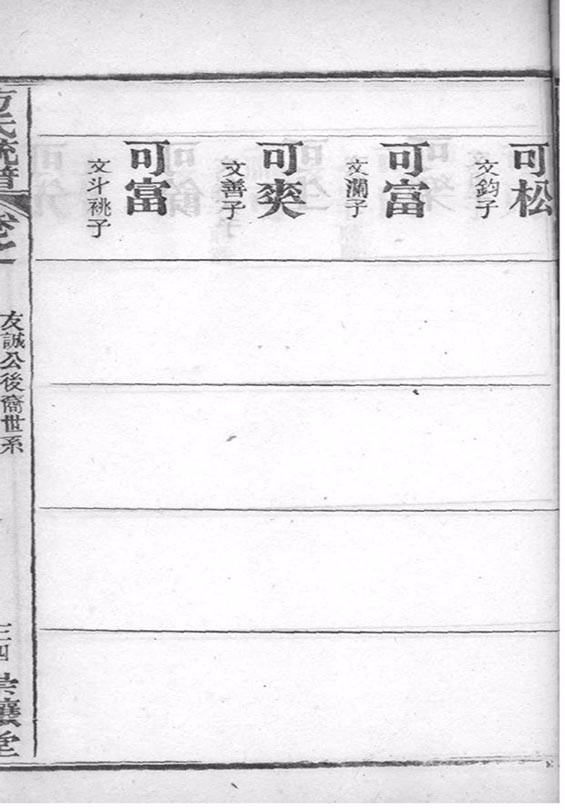 可松
文鈞子
可富
文瀾子
可爽
文善子
可富
文斗祧子
方氏統譜
卷之一
友誠公後裔世系
三四
堂